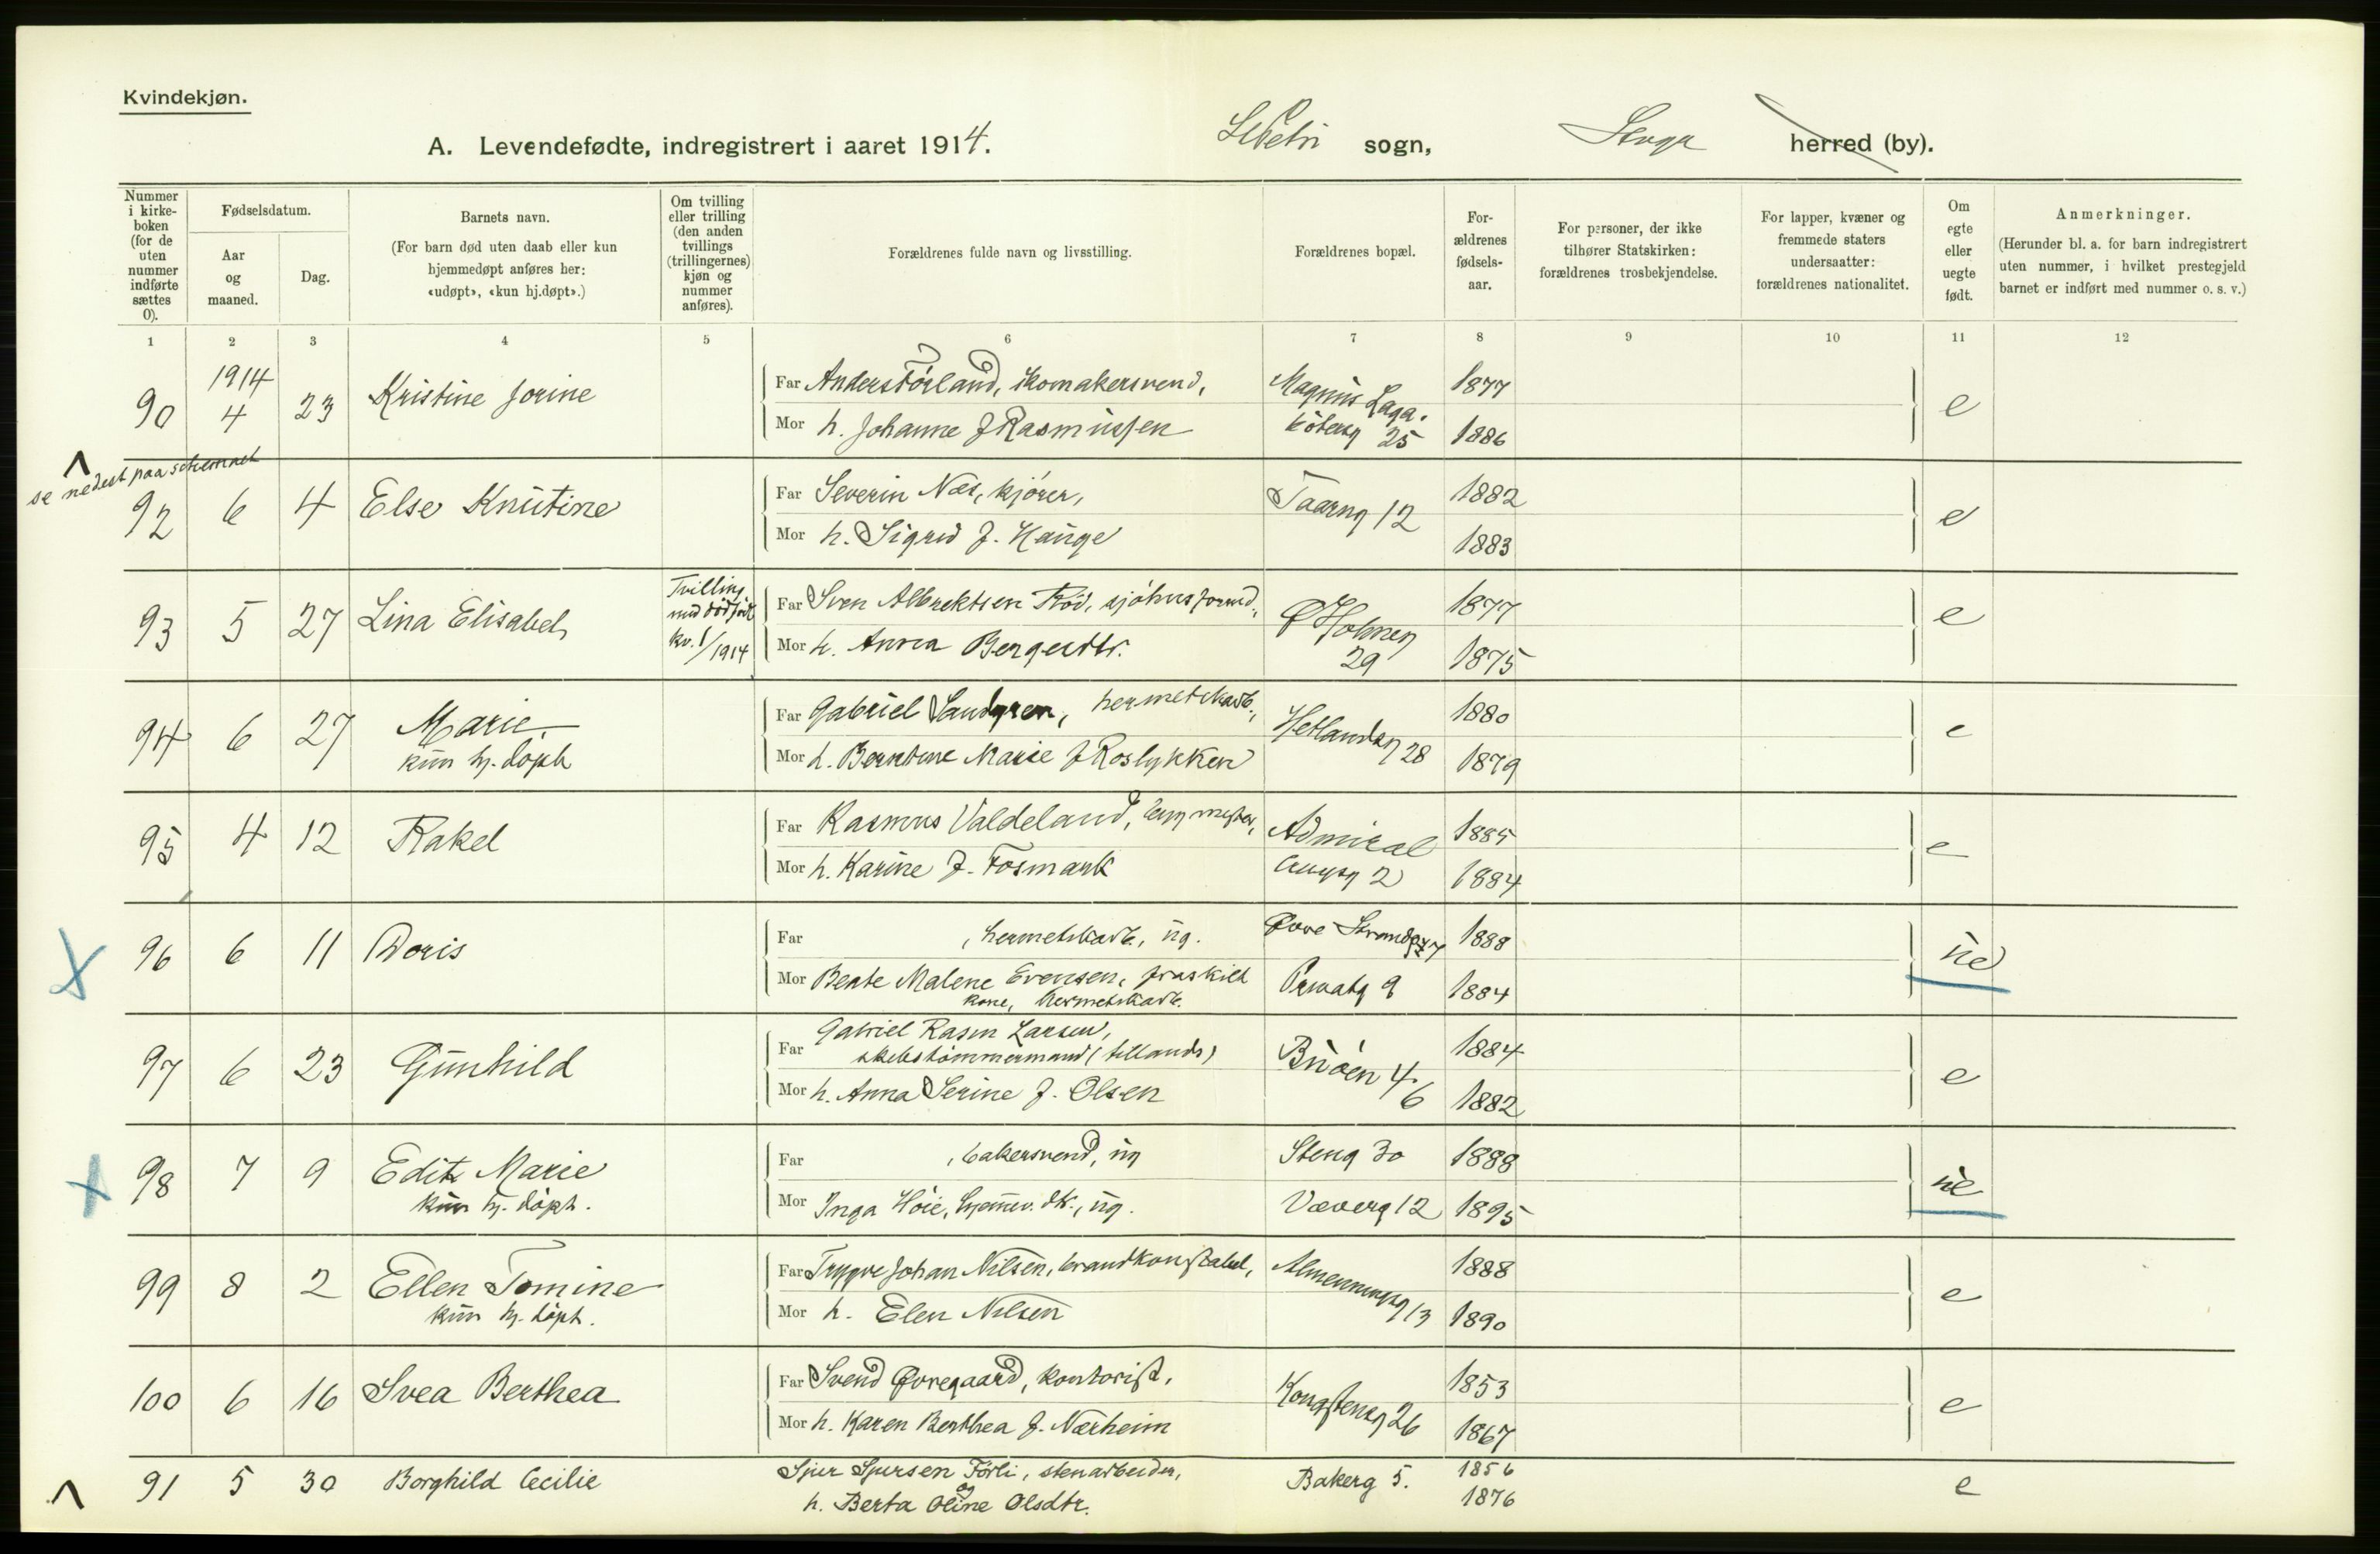 Kvindekjøn.
A. Levendefødte, indregistrert i aaret 1914. St Petri sogn, Stvgr herred (by).
Nummer i kirke-boken (for de uten nummer indførte sættes 0).
Fødselsdatum.
Aar og maaned.
Dag.
Barnets navn.
(For barn død uten daab eller kun hjemmedøpt anføres her: «udøpt», «kun hj.døpt».)
Om tvilling eller trilling (den anden tvillings (trillingernes) kjøn og nummer anføres).
Forældrenes fulde navn og livsstilling.
Forældrenes bopæl.
For-ældrenes fødsels-aar.
For personer, der ikke tilhører Statskirken: forældrenes trosbekjendelse.
For lapper, kvæner og fremmede staters undersaatter: forældrenes nationalitet.
Om egte eller uegte født.
Anmerkninger.
(Herunder bl. a. for barn indregistrert uten nummer, i hvilket prestegjeld barnet er indført med nummer o. s. v.)
1 2 3 4 5 6 7 8 9 10 11 12
1914
90 4 23 Kristine Jorine
Far Anders Førland, skomakersvend, Magnus Laga- 1877
Mor h. Johanne f Rasmussen bøtersg 25 1886 e
se nedest paa schemaet
92 6 4 Else Knutine
Far Severin Næs, kjører, Taarng 12 1882
Mor h. Sigrid f. Hauge 1883 e
93 5 27 Lina Elisabeh
Tvilling med dødfødt kv. 1/1914
Far Sven Albrektsen Rød, sjøhusformd., Ø Holmeg 1877
Mor h. Anna Bergesdtr. 29 1875 e
94 6 27 Marie
kun hj. døpt
Far Gabriel Sandgren, hermetikarb., Hetlandsg 28 1880
Mor h. Berntine Marie f Roslykken 1879 e
95 4 12 Rakel
Far Rasmus Valdeland, bygmester, Admiral 1885
Mor h. Karine f. Fosmark Cruysg 2 1884 e
96 6 11 Doris
Far , hermetikarb., ug. Øvre Strandg 77 1888
Mor Beate Malene Evensen, fraskilt Privatg 9 1884 ue
kone, hermetikarb.
97 6 23 Gunhild
Far Gabriel Rasm Larsen,
skibstømmermand (tillands) Buøen 4/6 1884
Mor h. Anna Serine f. Olsen 1882 e
98 7 9 Edith Marie
kun hj. døpt.
Far , bakersvend, ug Steng 30 1888
Mor Inga Høie, hjemmev. dtr., ug. Væverg 12 1895 ue
99 8 2 Ellen Tomine
kun hj. døpt.
Far Trygve Johan Nilsen, brandkonstabel, Almenningsg 13 1888
Mor h. Elen Nilsen 1890 e
100 6 16 Svea Berthea
Far Svend Øvregaard, kontorist, Kongstensg 26 1853
Mor h. Karen Berthea f. Nærheim 1867 e
91 5 30 Borghild Cecilie
Sjur Sjursen Førli, stenarbeider, Bakerg 5. 1856
og
h. Berta Oline Olsdtr. 1876 e